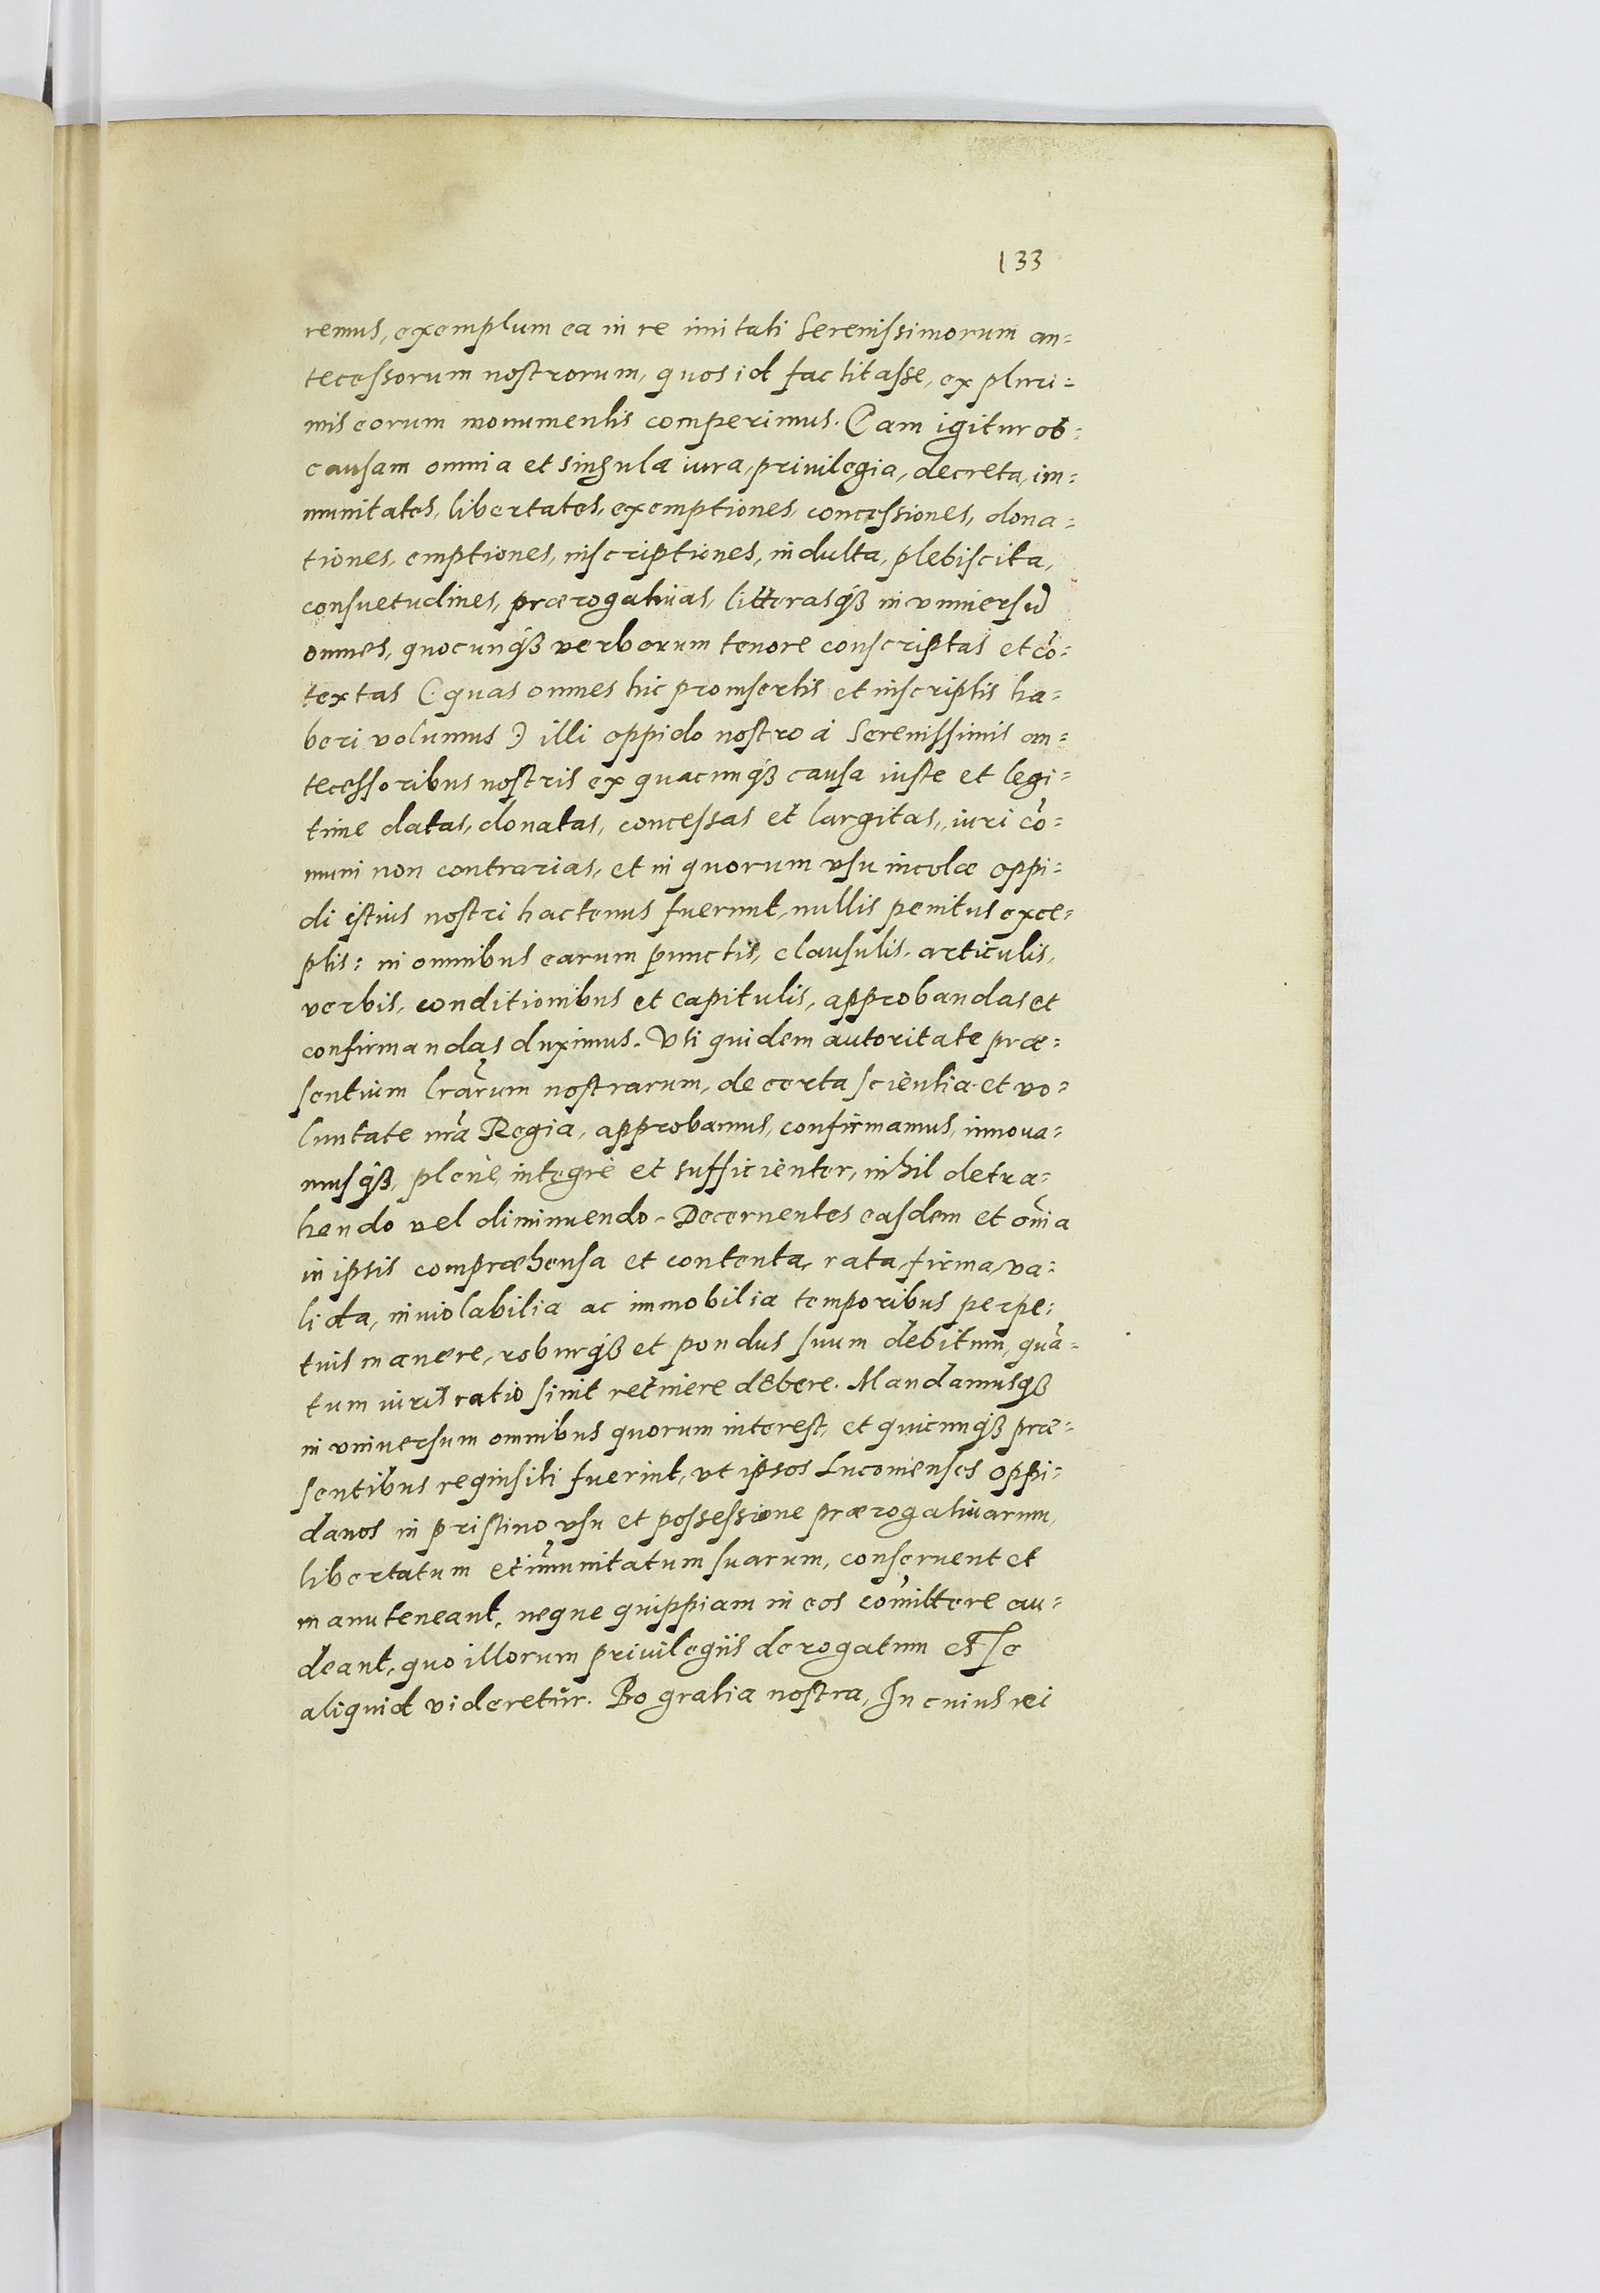 133
remus, exemplum ea in re imitati Serenissimorum an=
tecessorum nostrorum, quos id factitasse, ex pluri=
mis eorum monumentis comperimus. Eam igitur ob=
causam omnia et singula iura, priuilegia, decreta, im=
munitates, libertates, exemptiones, concessiones, dona=
tiones, emptiones, inscriptiones, indulta, plebiscita,
consuetudines, prærogatiuas, litterasqꝫ in vniuersū
omnes, quocunqꝫ verborum tenore conscriptas et cō=
textas (quas omnes hic pro insertis et inscriptis ha=
beri volumus) illi oppido nostro à Serenissimis an=
tecessoribus nostris ex quacunqꝫ causa iuste et legi=
time datas, donatas, concessas et largitas, iuri cō=
muni non contrarias, et in quorum vsu incolæ oppi=
di istius nostri hactenus fuerunt, nullis penitus exce=
ptis: in omnibus earum punctis, clausulis, articulis,
verbis, conditionibus et capitulis, approbandas et
confirmandas duximus. Vti quidem autoritate præ=
sentium lrārum nostrarum, de certa scientia et vo=
luntate nrā Regia, approbamus, confirmamus, innoua=
musqꝫ, plenè, integrè et sufficienter, nihil detra=
hendo vel diminuendo. Decernentes easdem et oīa
in ipsis compræhensa et contenta, rata, firma, va=
lida, inuiolabilia ac immobilia temporibus perpe=
tuis manere, roburqꝫ et pondus suum debitum, quā=
tum iuris ratio sinit retinere debere. Mandamusqꝫ
in vniuersum omnibus quorum interest, et quicunqꝫ præ=
sentibus requisiti fuerint, vt ipsos Luconienses oppi=
danos in pristino vsu et possessione prærogatiuarum,
libertatum et im̄unitatum suarum, conseruent et
manuteneant, neque quippiam in eos com̄ittere au=
deant, quo illorum priuilegiis derogatum esse
aliquid videretur. Pro gratia nostra, In cuius rei